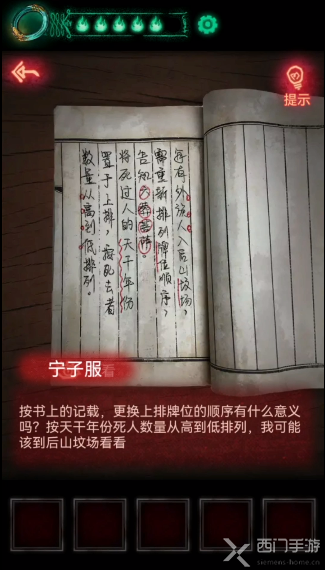 提示
每有外族人入后山坟场，
需重新排列牌位顺序，
将死过人的天干年份
置于上排，按死去者
数量从高到低排列。
宁子服
按书上的记载，更换上排牌位的顺序有什么意义
吗？按天干年份死人数量从高到低排列，我可能
该到后山坟场看看
西门手游
siemens-home.com